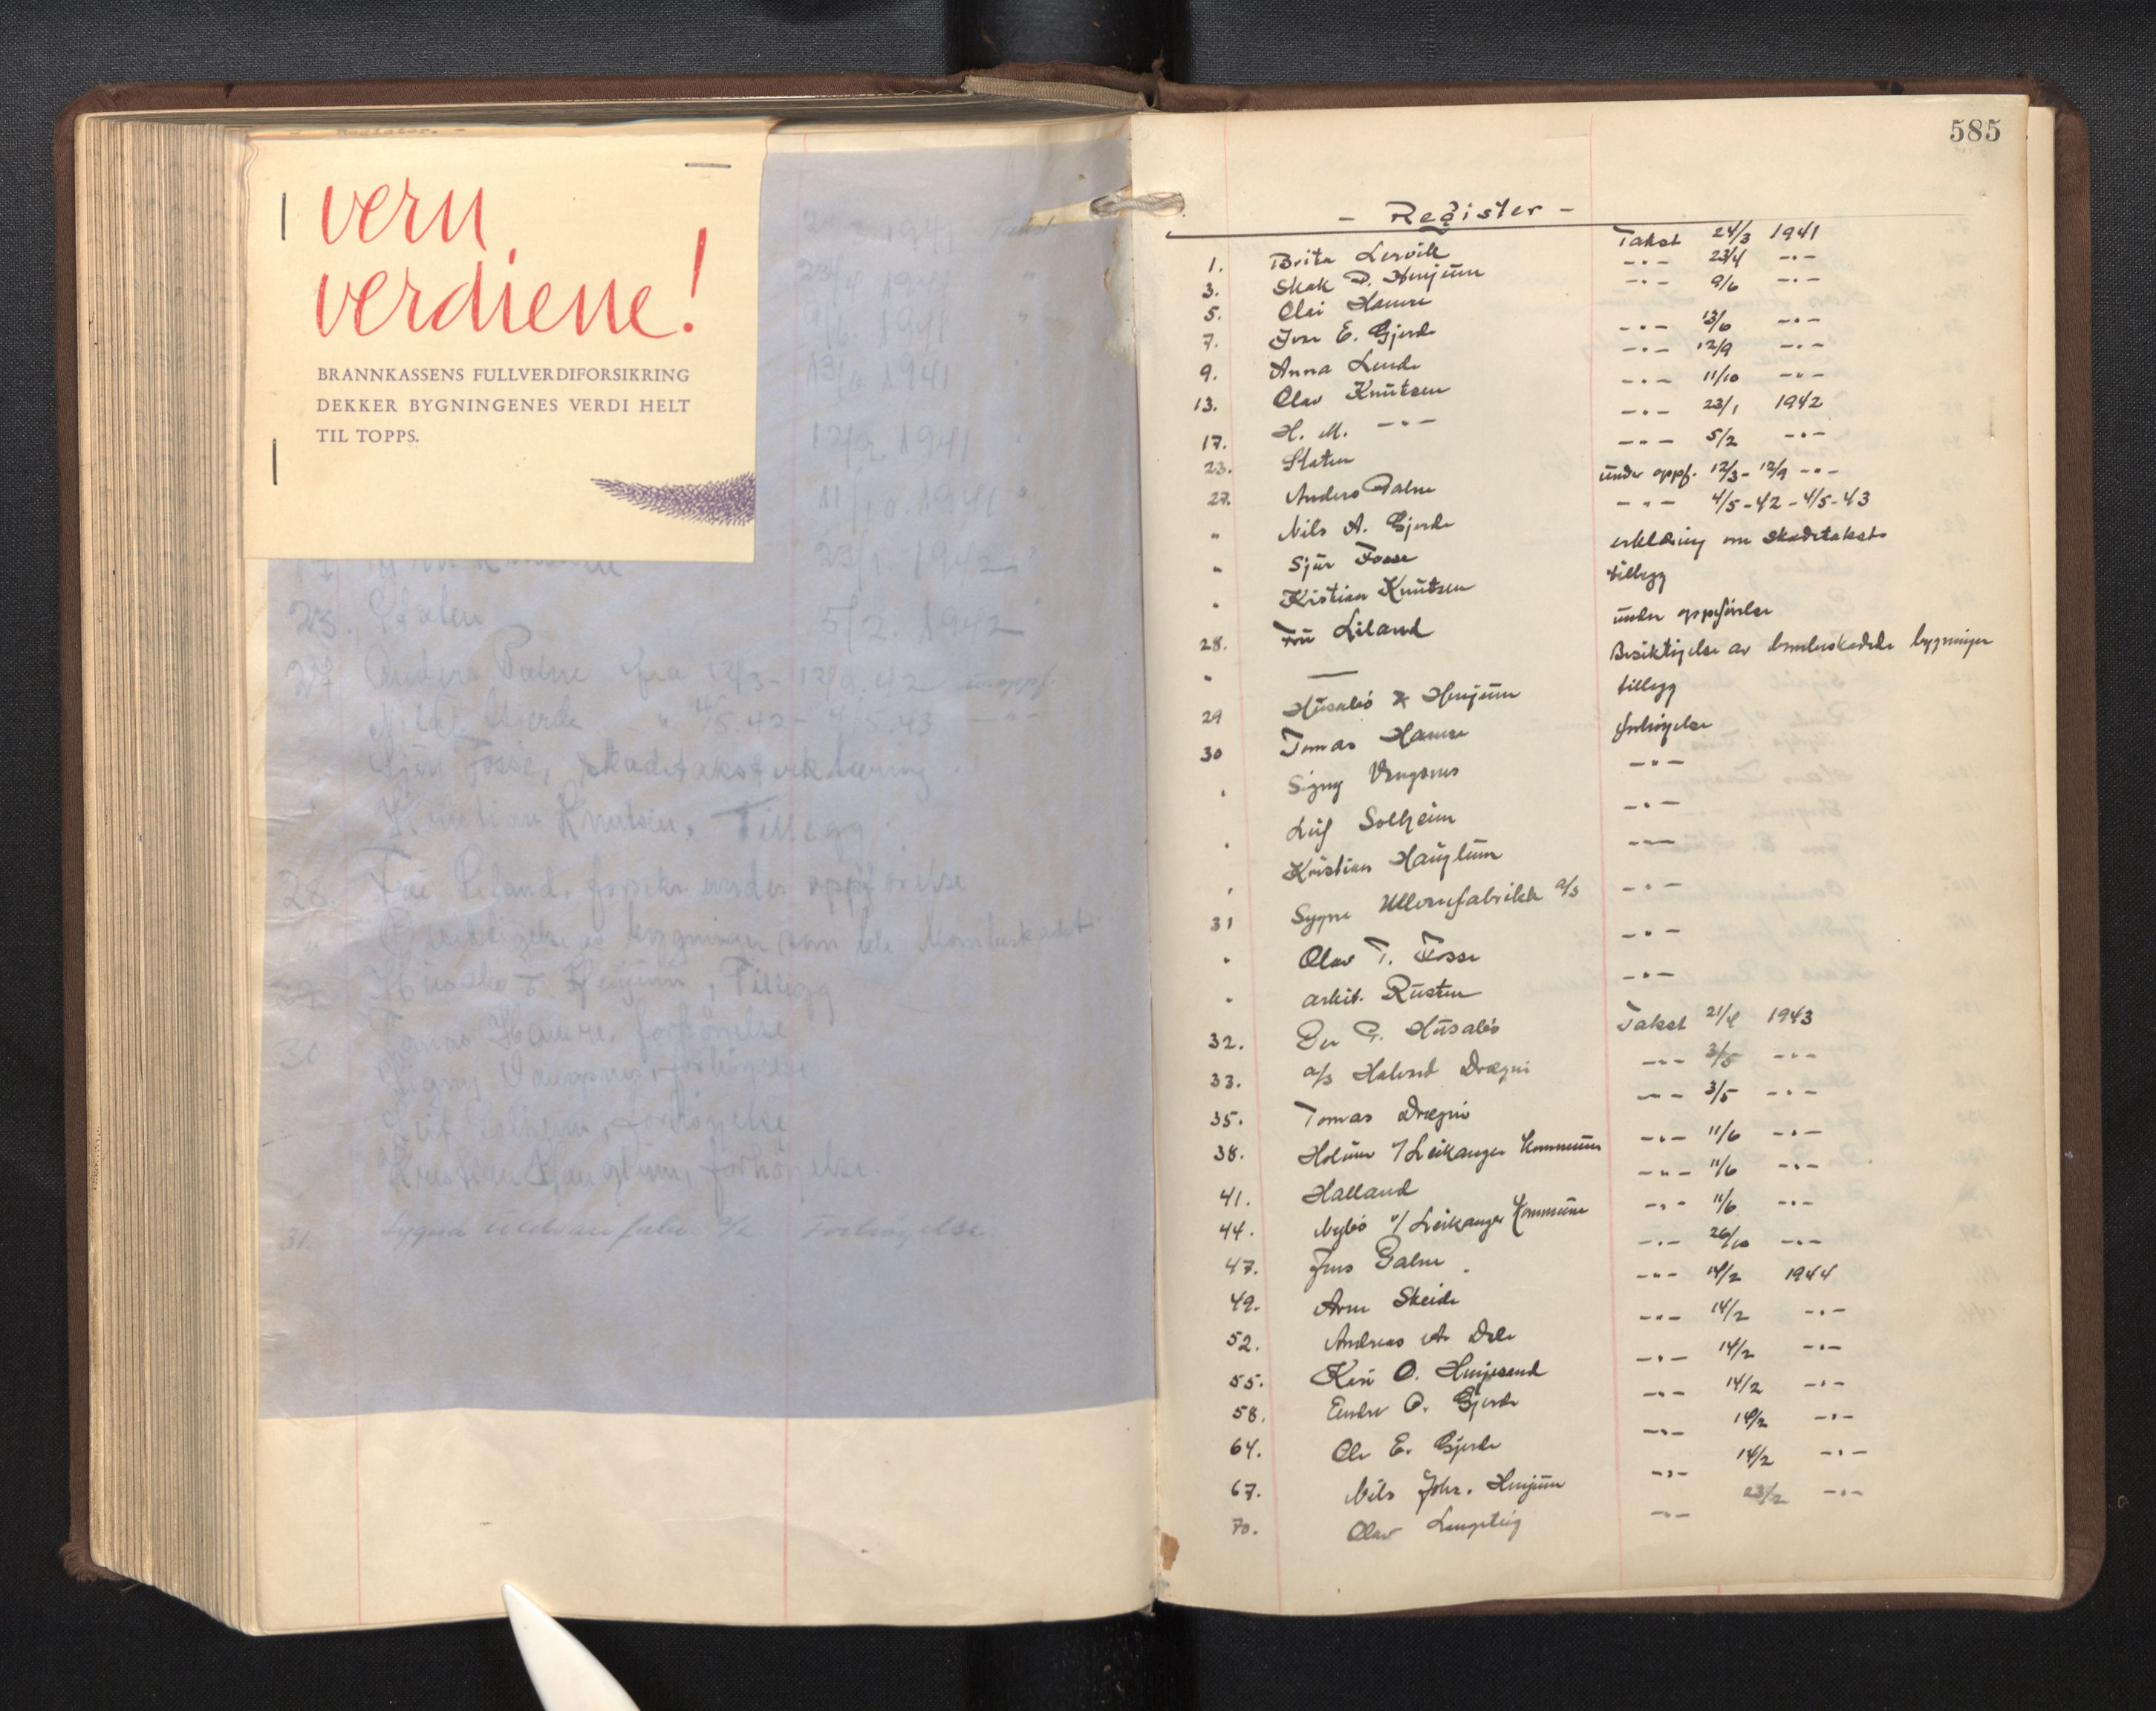 - Register. -
vern
verdiene!
BRANNKASSENS FULLVERDIFORSIKRING
DEKKER BYGNINGENES VERDI HELT
TIL TOPPS.
1941 Takst
23/4 1941 "
9/6. 1941 "
13/6 1941
12/9 1941
11/10. 1941 "
23/1. 1942 "
17.
23. Staten 5/2. 1942 "
27 Anders Balne fra 12/3 - 12/9.42
Gjerde " 4/5.42 - 4/5.43 -"-
Sjur Fosse, skadetakst erklæring
Kristian Knutsen. Tillegg
28. Frü Liland, under oppförelse
bygninger som ble
29. Henjum, Tillegg
30 Tomas Hamre, forhöyelse
Signy Vangsnes, forhöyelse
Leif Solheim, forhöyelse
Kristian Hauglum, forhöyelse.
31. Sygna Forhöyelse.
585
- Register -
1. Brita Lervik Takst 24/3 1941
3. Skak P. Henjum -"- 23/4 -"-
5. Olai Hamre -"- 9/6 -"-
7. Iver E. Gjerde -"- 13/6 -"-
9. Anna Lunde -"- 12/9 -"-
13. Olav Knutsen -"- 11/10 -"-
17. H. M. -"- -"- 23/1 1942
23. Staten -"- 5/2 -"-
27. Anders Balne under oppf. 12/3 - 12/9 -"-
" Nils A. Gjerde -"- 4/5-42 - 4/5-43
" Sjur Fosse erklæring om skadetakst
" Kristian Knutsen tillegg
28. Frü Liland under oppförelse
" — Besiktigelse av bombeskadde bygninger
29 Husabö & Henjum tillegg
30 Tomas Hamre forhöyelse
" Signy Vangsnes -"-
" Leif Solheim -"-
" Kristian Hauglum -"-
31 Sygna Ullvarefabrikk a/s -"-
" Olav T. Fosse -"-
" arkit. Rusten -"-
32. Per P. Husabö Takst 21/4 1943
33. a/s Halvard Drægni -"- 3/5 -"-
35. Tomas Drægni -"- 3/5 -"-
38. Holum v/ Leikanger Kommune -"- 11/6 -"-
41. Halland -"- 11/6 -"-
44. Nybö v/ Leikanger Kommune -"- 11/6 -"-
47. Jens Balne -"- 26/10 -"-
49. Arne Skeide -"- 14/2 1944
52. Andreas A. Dale -"- 14/2 -"-
55. Kari O. Henjesand -"- 14/2 -"-
58. Endre O. Gjerde -"- 14/2 -"-
64. Ole E. Gjerde -"- 14/2 -"-
67. Nils Johs. Henjum -"- 14/2 -"-
70. Olav Langeteig -"- 23/2 -"-